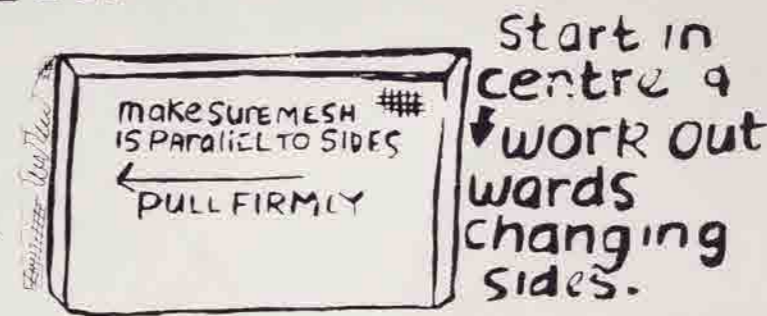 make SURE MESH
IS PARALLEL TO SIDES
PULL FIRMLY
Start in
centre &
work out
wards
changing
sides.